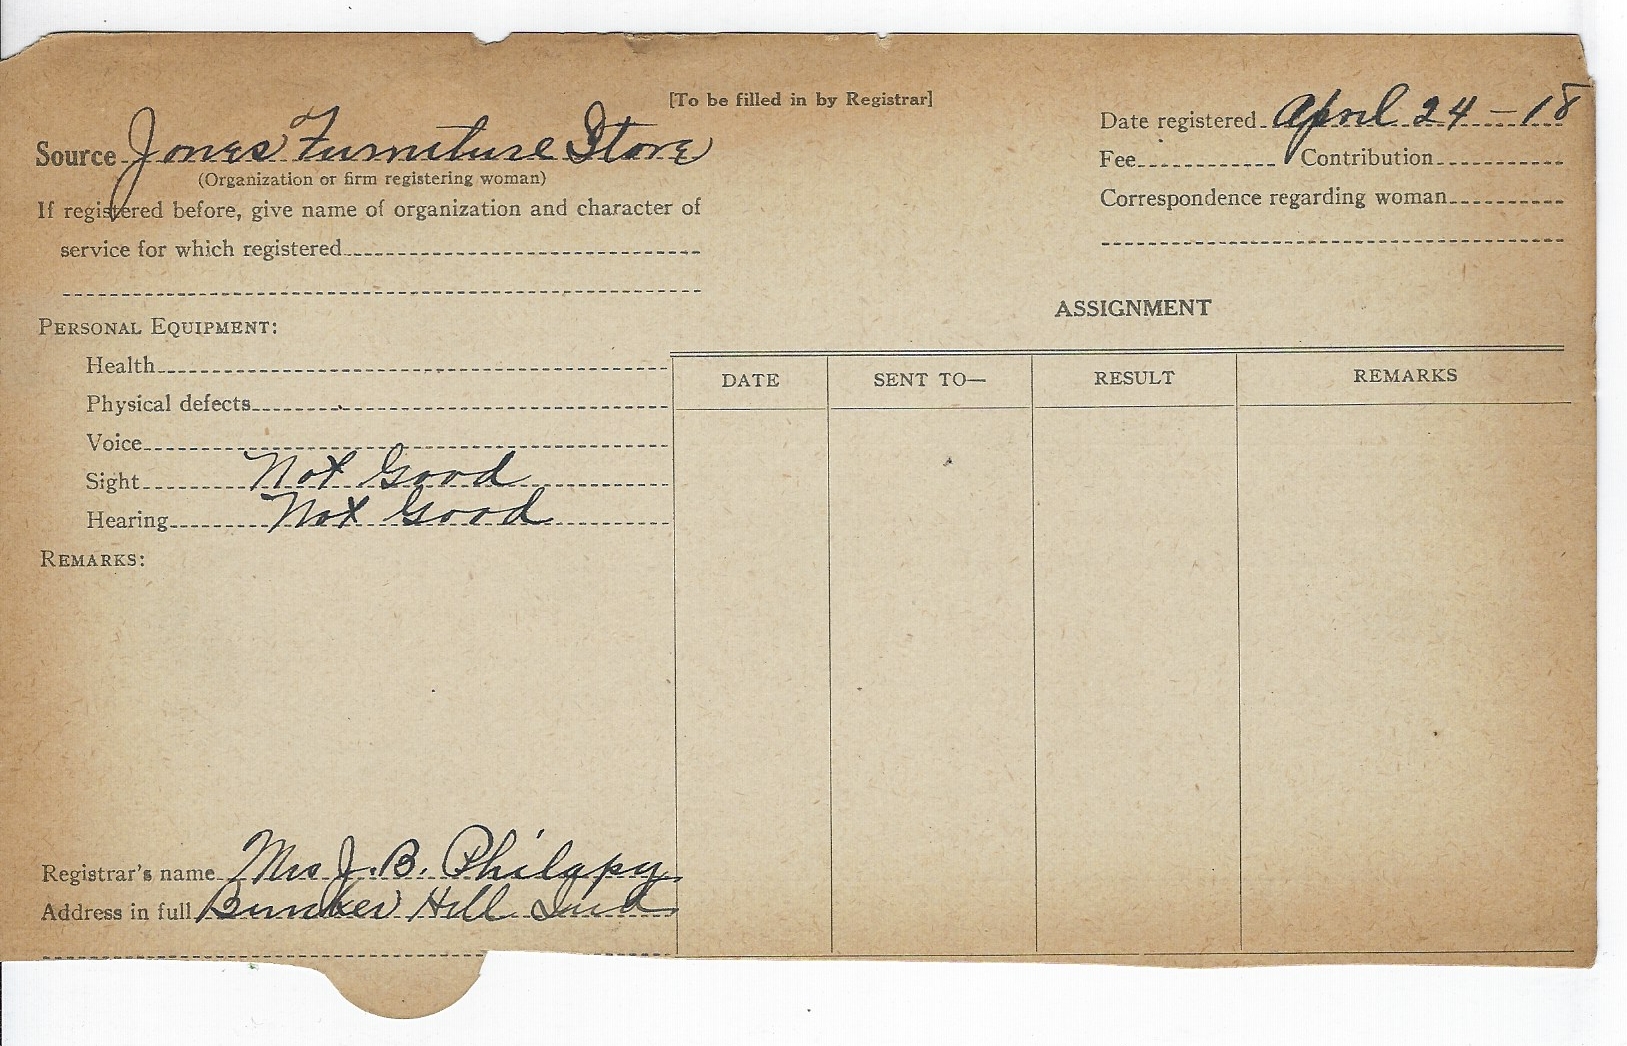 [To be filled in by Registrar]
Source Jones Furniture Store
(Organization or firm registering woman)
If registered before, give name of organization and character of
service for which registered
Date registered April 24-18
Fee Contribution
Correspondence regarding woman
PERSONAL EQUIPMENT:
Health
Physical defects
Voice
Sight Not Good
Hearing Not Good
REMARKS:
Registrar's name Mrs J. B. Philapy
Address in full Bunker Hill Ind
ASSIGNMENT
DATE SENT TO— RESULT REMARKS